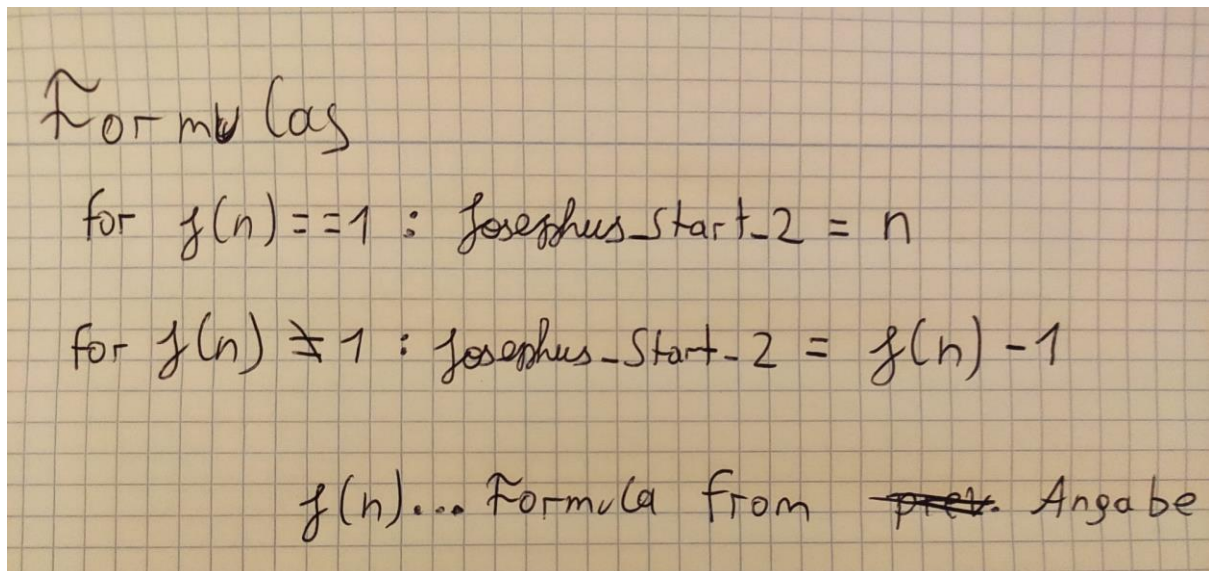 Formulas
for J(n) == 1 : Josephus_Start_2 = n
for J(n) ≠ 1 : Josephus_Start_2 = J(n) - 1
J(n)... Formula from prev. Angabe